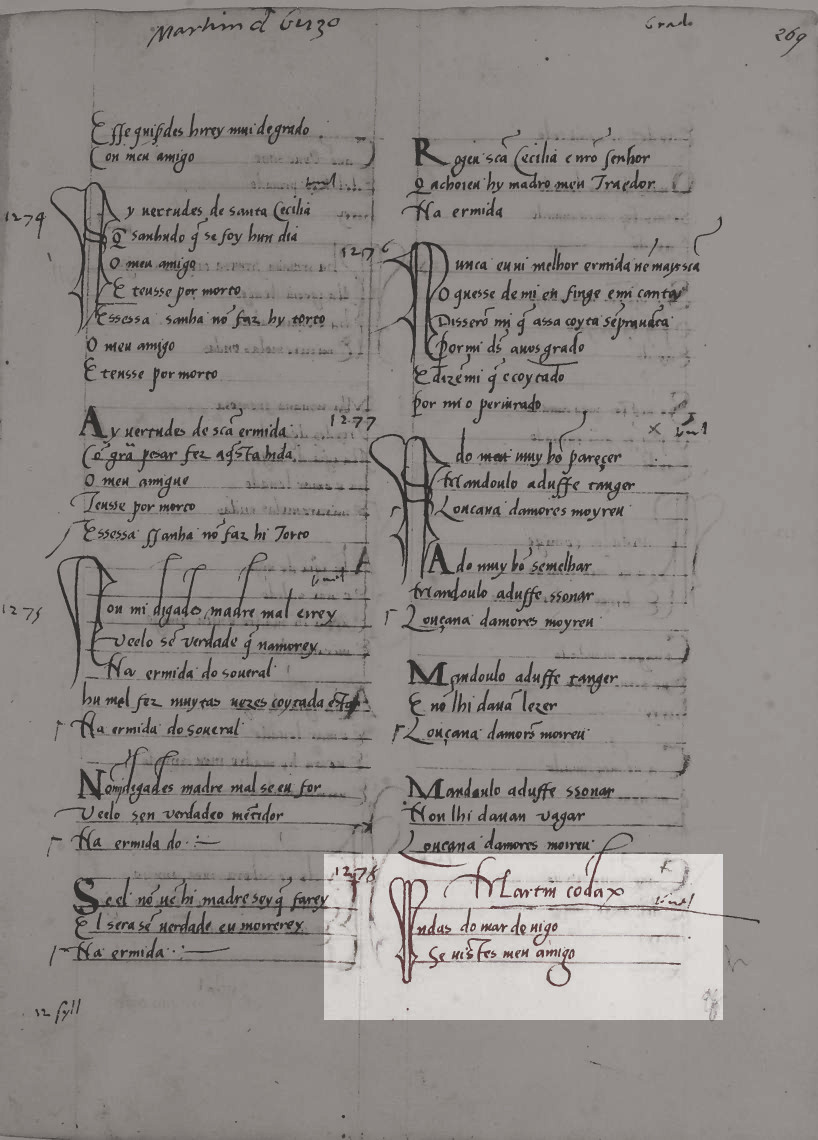 Martin d Ginzo
Grado
269
Esse quiserdes hirrey mui de grado
Con meu amigo
1274
Ay uertudes de santa Cecilia
Q̄ sanhudo q̄ se foy hun dia
O meu amigo
E teusse por morto
Essessa sanha no faz hy torto
O meu amigo
E teusse por morto
Ay uertudes de scā ermida
Cō grā pesar fez aq̄sta uida
O meu amigue
Teusse por morto
Essessa ssanha nō faz hi Torto
1275
Non mi digades madre mal e irey
Veelo sē verdade q̄ namorey
Na ermida do soueral
hu mel fez muytas uezes coytada
Na ermida do soueral
Nō digades madre mal se eu for
Veelo sen verdadeo mētidor
Na ermida do
Se el nō uē hi madre sey q̄ farey
El sera sē verdade eu morrerey
Na ermida
12 syll
Roguei scā Cecilia e nrō senhor
Q achoieu hy madro meu Traedor
Na ermida
1276
Nunca eu ui melhor ermida nē mays scā
O quesse de mi en finge e mi canta
Disserō mi q̄ assa coyta sēpravāta
Por mi ds̄ auos grado
E dizē mi q̄ e coytado
por mi o periurado
1277
x
A do muy bō pareçer
Mandoulo aduffe tanger
Louçana damores moyreu
A do muy bō semelhar
Mandoulo aduffe ssonar
Louçana damores moyreu
Mandoulo aduffe tanger
E nō lhi dauā lezer
Louçana damors moireu
Mandoulo aduffe ssonar
Non lhi dauan vagar
Louçana damores moireu
1278
Martin codax
Ondas do mar de uigo
Se uistes meu amigo